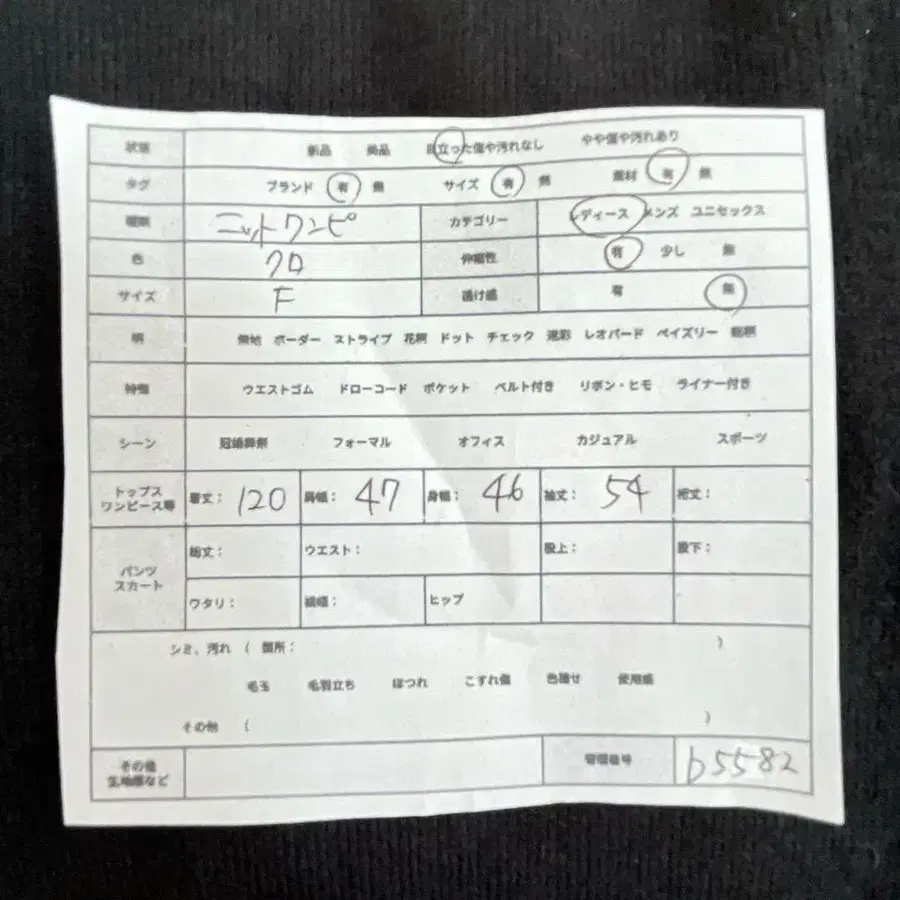 状態 新品 美品 目立った傷や汚れなし やや傷や汚れあり
タグ ブランド 有 無 サイズ 有 無 素材 有 無
種類 ニットワンピ カテゴリー レディース メンズ ユニセックス
色 クロ 伸縮性 有 少し 無
サイズ F 透け感 有 無
柄 無地 ボーダー ストライプ 花柄 ドット チェック 迷彩 レオパード ペイズリー 総柄
特徴 ウエストゴム ドローコード ポケット ベルト付き リボン・ヒモ ライナー付き
シーン 冠婚葬祭 フォーマル オフィス カジュアル スポーツ
トップス
ワンピース等 着丈： 120 肩幅： 47 身幅： 46 袖丈： 54 裄丈：
パンツ
スカート 総丈： ウエスト： 股上： 股下：
ワタリ： 裾幅： ヒップ
シミ、汚れ （ 箇所： ）
毛玉 毛羽立ち ほつれ こすれ傷 色褪せ 使用感
その他 （ ）
その他
生地感など 管理番号 b5582